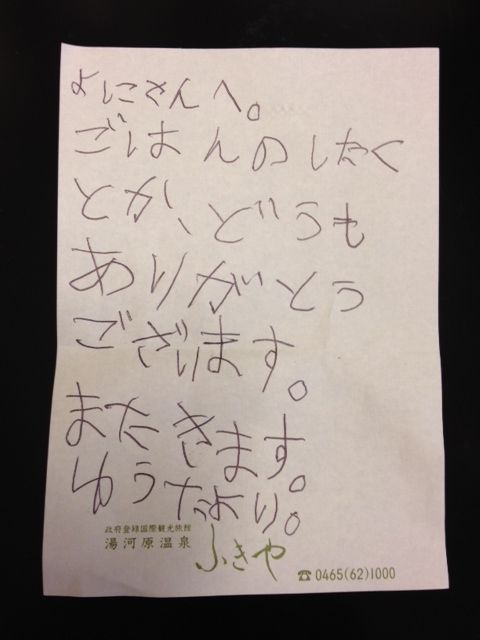 よしこさんへ。
ごはんのしたく
とか、どうも
ありがとう
ございます。
またきます。
ゆうたより。
政府登録国際観光旅館
湯河原温泉
ふきや
☎0465(62)1000